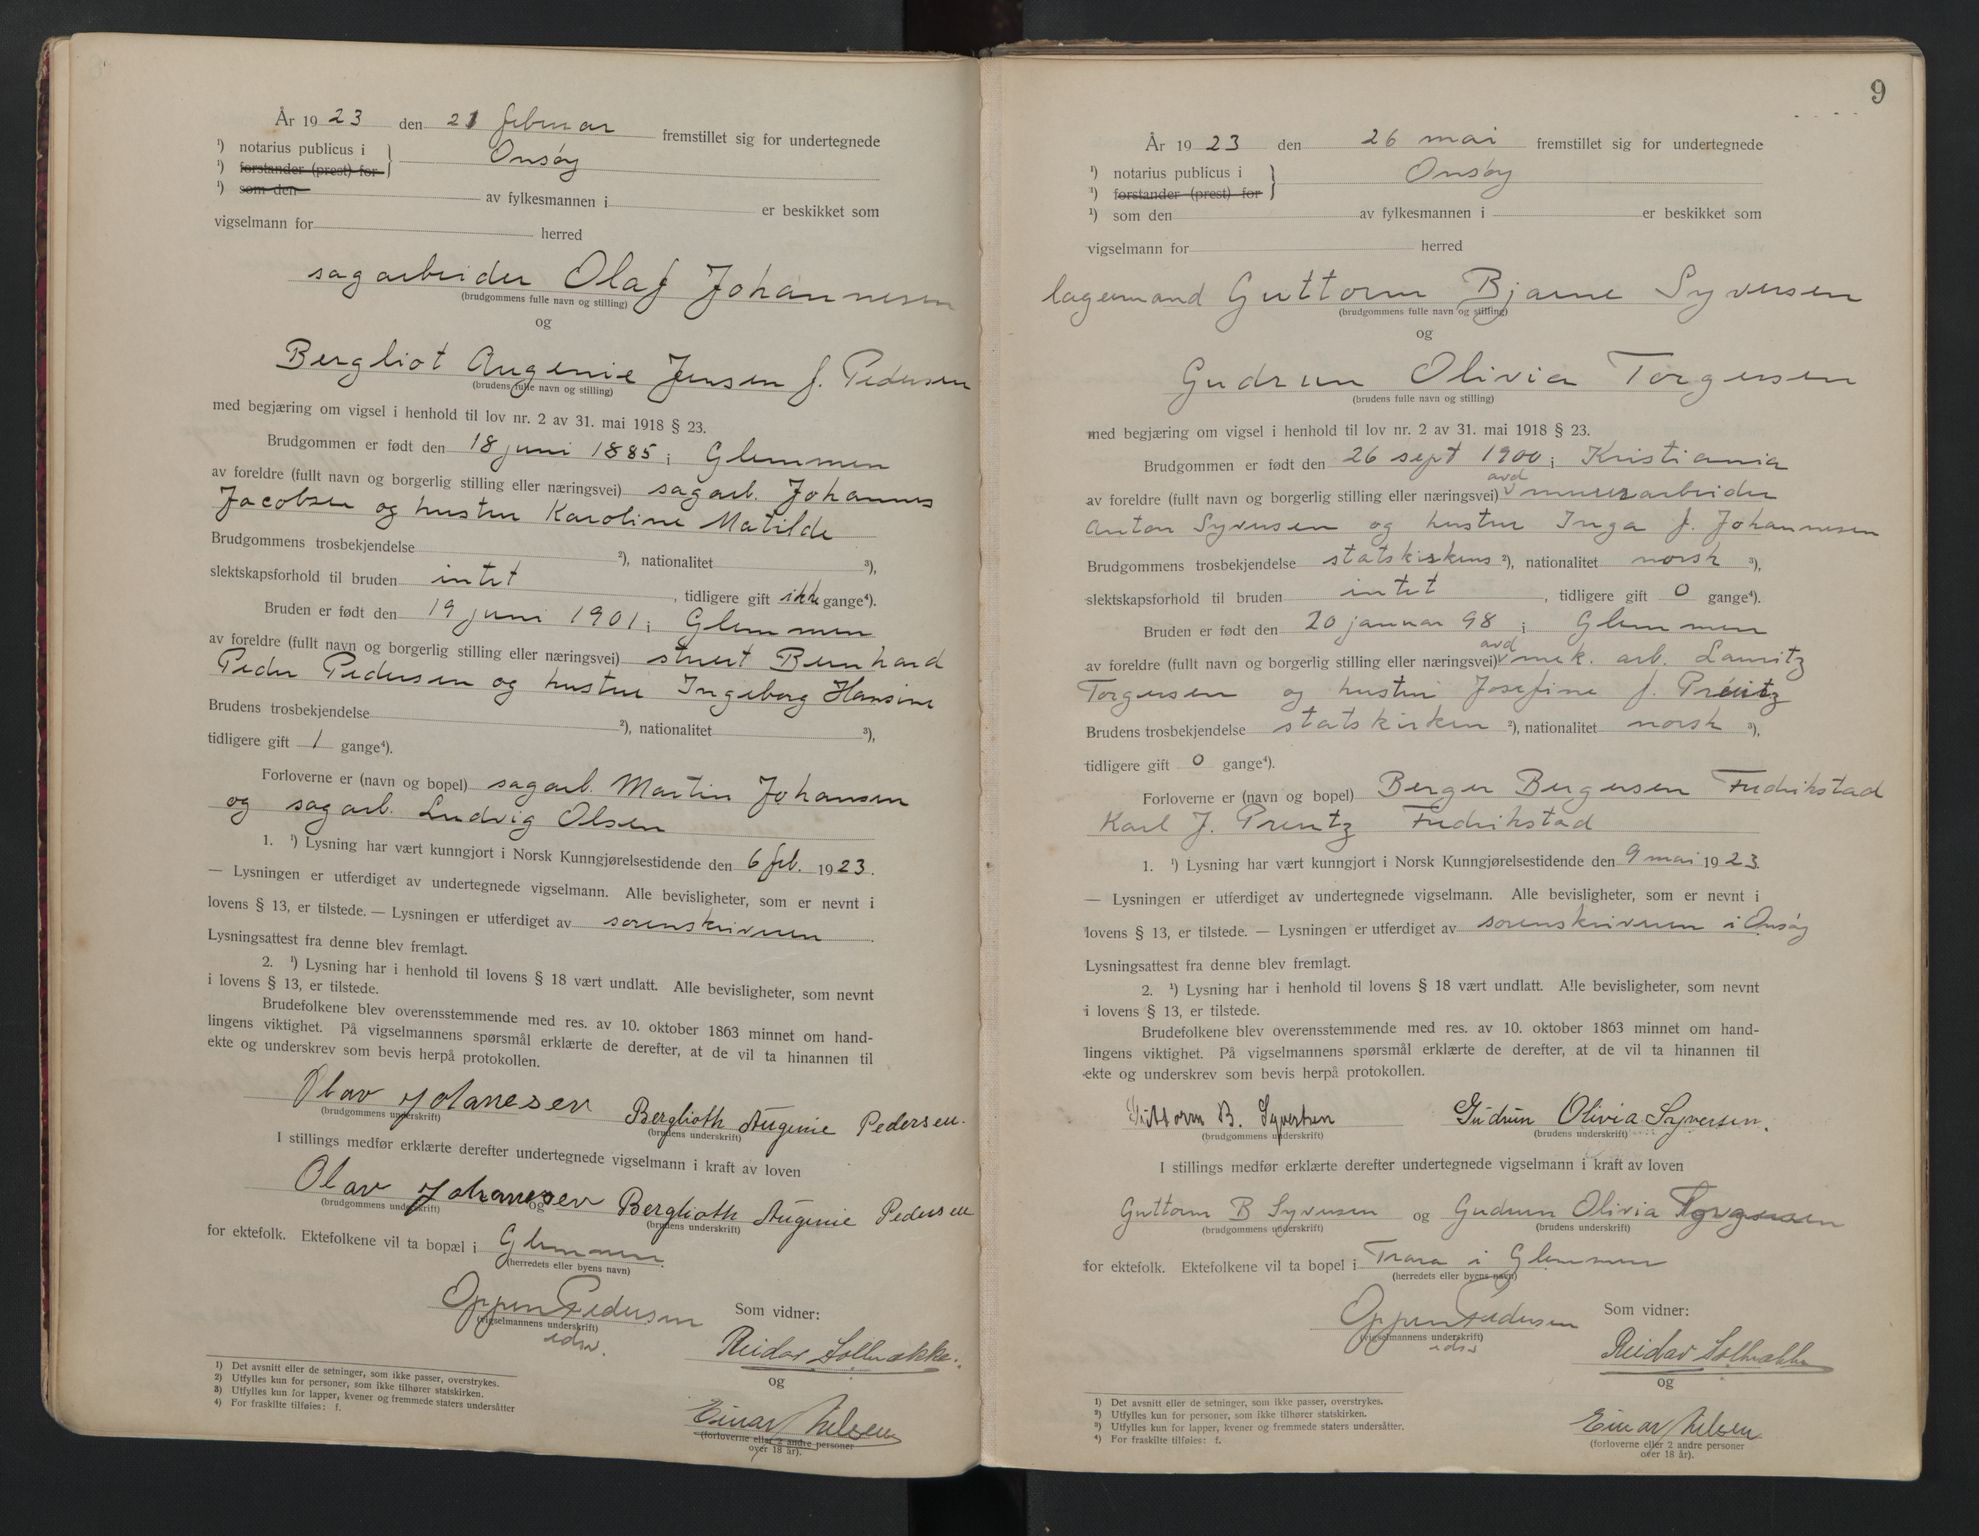 År 1923 den 21 februar fremstillet sig for undertegnede
¹) notarius publicus i
Onsøy
¹) forstander (prest) for
¹) som den av fylkesmannen i er beskikket som
vigselmann for herred
sagarbeider Olaf Johannesen
(brudgommens fulle navn og stilling)
og
Bergliot Augenie Jensen f. Pedersen
(brudens fulle navn og stilling)
med begjæring om vigsel i henhold til lov nr. 2 av 31. mai 1918 § 23.
Brudgommen er født den 18 juni 1885 i Glemmen
av foreldre (fullt navn og borgerlig stilling eller næringsvei) sagarb. Johannes
Jacobsen og hustru Karoline Matilde
Brudgommens trosbekjendelse ²), nationalitet ³),
slektskapsforhold til bruden intet , tidligere gift ikke gange⁴).
Bruden er født den 19 juni 1901 i Glemmen
av foreldre (fullt navn og borgerlig stilling eller næringsvei) stuert Bernhard
Peder Pedersen og hustru Ingeborg Hansine
Brudens trosbekjendelse ²), nationalitet ³),
tidligere gift 1 gange⁴).
Forloverne er (navn og bopel) sagarb. Martin Johansen
og sagarb. Ludvig Olsen
1. ¹) Lysning har vært kunngjort i Norsk Kunngjørelsestidende den 6 feb. 1923.
— Lysningen er utferdiget av undertegnede vigselmann. Alle bevisligheter, som er nevnt i
lovens § 13, er tilstede. — Lysningen er utferdiget av sorenskriveren
Lysningsattest fra denne blev fremlagt.
2. ¹) Lysning har i henhold til lovens § 18 vært undlatt. Alle bevisligheter, som nevnt
i lovens § 13, er tilstede.
Brudefolkene blev overensstemmende med res. av 10. oktober 1863 minnet om hand-
lingens viktighet. På vigselmannens spørsmål erklærte de derefter, at de vil ta hinannen til
ekte og underskrev som bevis herpå protokollen.
Olav Johanesen Berglioth Augenie Pedersen.
(brudgommens underskrift) (brudens underskrift)
I stillings medfør erklærte derefter undertegnede vigselmann i kraft av loven
Olav Johanesen og Berglioth Augenie Pedersen
(brudgommens underskrift) (brudens underskrift)
for ektefolk. Ektefolkene vil ta bopæl i Glemmen
(herredets eller byens navn)
Oppen Pedersen Som vidner:
(vigselmannens underskrift)
edsv. Reidar Solbrække
og
¹) Det avsnitt eller de setninger, som ikke passer, overstrykes.
²) Utfylles kun for personer, som ikke tilhører statskirken.
³) Utfylles kun for lapper, kvener og fremmede staters undersåtter
⁴) For fraskilte tilføies: f.
Einar Nelsen
(forloverne eller 2 andre personer
over 18 år).
9
År 1923 den 26 mai fremstillet sig for undertegnede
¹) notarius publicus i
Onsøy
¹) forstander (prest) for
¹) som den av fylkesmannen i er beskikket som
vigselmann for herred
lagermand Guttorm Bjarne Syversen
(brudgommens fulle navn og stilling)
og
Gudrun Olivia Torgersen
(brudens fulle navn og stilling)
med begjæring om vigsel i henhold til lov nr. 2 av 31. mai 1918 § 23.
Brudgommen er født den 26 sept 1900 i Kristiania
av foreldre (fullt navn og borgerlig stilling eller næringsvei) avd murerarbeider
Anton Syversen og hustru Inga f. Johannesen
Brudgommens trosbekjendelse statskirkens ²), nationalitet norsk ³),
slektskapsforhold til bruden intet , tidligere gift 0 gange⁴).
Bruden er født den 20 januar 98 i Glemmen
av foreldre (fullt navn og borgerlig stilling eller næringsvei) avd mek. arb. Lauritz
Torgersen og hustru Josefine f. Preutz
Brudens trosbekjendelse statskirken ²), nationalitet norsk ³),
tidligere gift 0 gange⁴).
Forloverne er (navn og bopel) Berger Bergersen Fredrikstad
Karl J. Preutz Fredrikstad
1. ¹) Lysning har vært kunngjort i Norsk Kunngjørelsestidende den 9 mai 1923.
— Lysningen er utferdiget av undertegnede vigselmann. Alle bevisligheter, som er nevnt i
lovens § 13, er tilstede. — Lysningen er utferdiget av sorenskriveren i Onsøy
Lysningsattest fra denne blev fremlagt.
2. ¹) Lysning har i henhold til lovens § 18 vært undlatt. Alle bevisligheter, som nevnt
i lovens § 13, er tilstede.
Brudefolkene blev overensstemmende med res. av 10. oktober 1863 minnet om hand-
lingens viktighet. På vigselmannens spørsmål erklærte de derefter, at de vil ta hinannen til
ekte og underskrev som bevis herpå protokollen.
Guttorm B. Syversen Gudrun Olivia Syversen.
(brudgommens underskrift) (brudens underskrift)
I stillings medfør erklærte derefter undertegnede vigselmann i kraft av loven
Guttorm B Syversen og Gudrun Olivia Torgersen
(brudgommens underskrift) (brudens underskrift)
for ektefolk. Ektefolkene vil ta bopel i Trara i Glemmen
(herredets eller byens navn)
Oppen Pedersen Som vidner:
(vigselmannens underskrift)
edsv Reidar Solbrække
og
¹) Det avsnitt eller de setninger, som ikke passer, overstrykes.
²) Utfylles kun for personer, som ikke tilhører statskirken.
³) Utfylles kun for lapper, kvener og fremmede staters undersåtter.
⁴) For fraskilte tilføies: f.
Einar Nelsen
(forloverne eller 2 andre personer
over 18 år).